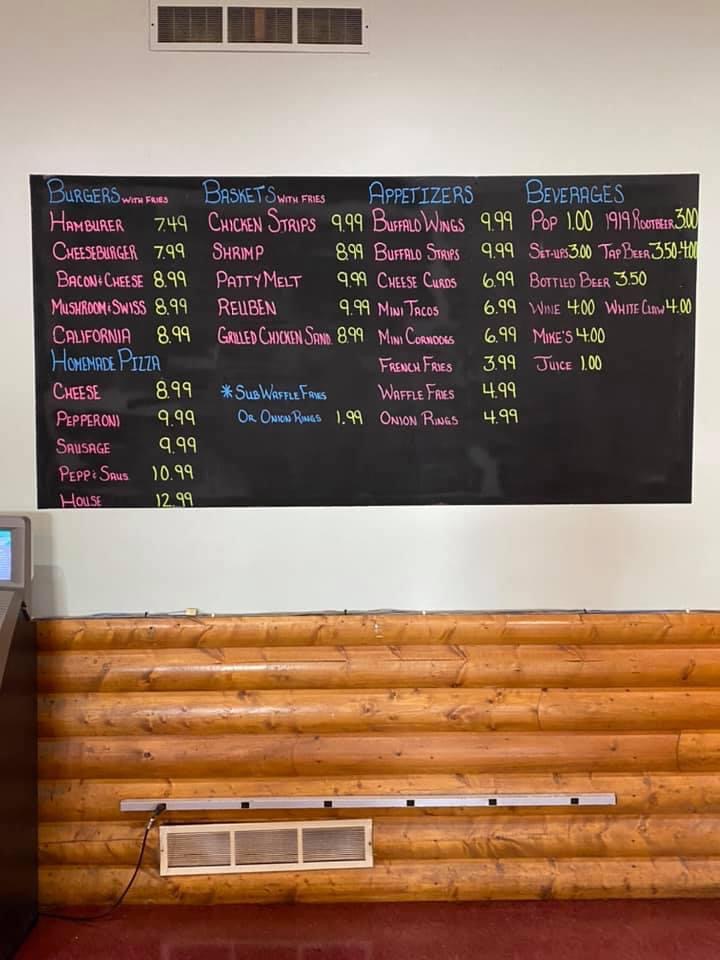 BURGERS WITH FRIES
HAMBURER 7.49
CHEESEBURGER 7.99
BACON & CHEESE 8.99
MUSHROOM & SWISS 8.99
CALIFORNIA 8.99
HOMEMADE PIZZA
CHEESE 8.99
PEPPERONI 9.99
SAUSAGE 9.99
PEPP & SAUS. 10.99
HOUSE 12.99
BASKETS WITH FRIES
CHICKEN STRIPS 9.99
SHRIMP 8.99
PATTY MELT 9.99
REUBEN 9.99
GRILLED CHICKEN SAND. 8.99
* SUB WAFFLE FRIES
OR ONION RINGS 1.99
APPETIZERS
BUFFALO WINGS 9.99
BUFFALO STRIPS 9.99
CHEESE CURDS 6.99
MINI TACOS 6.99
MINI CORNDOGS 6.99
FRENCH FRIES 3.99
WAFFLE FRIES 4.99
ONION RINGS 4.99
BEVERAGES
POP 1.00 1919 ROOTBEER 3.00
SET-UPS 3.00 TAP BEER 3.50-4.00
BOTTLED BEER 3.50
WINE 4.00 WHITE CLAW 4.00
MIKE'S 4.00
JUICE 1.00